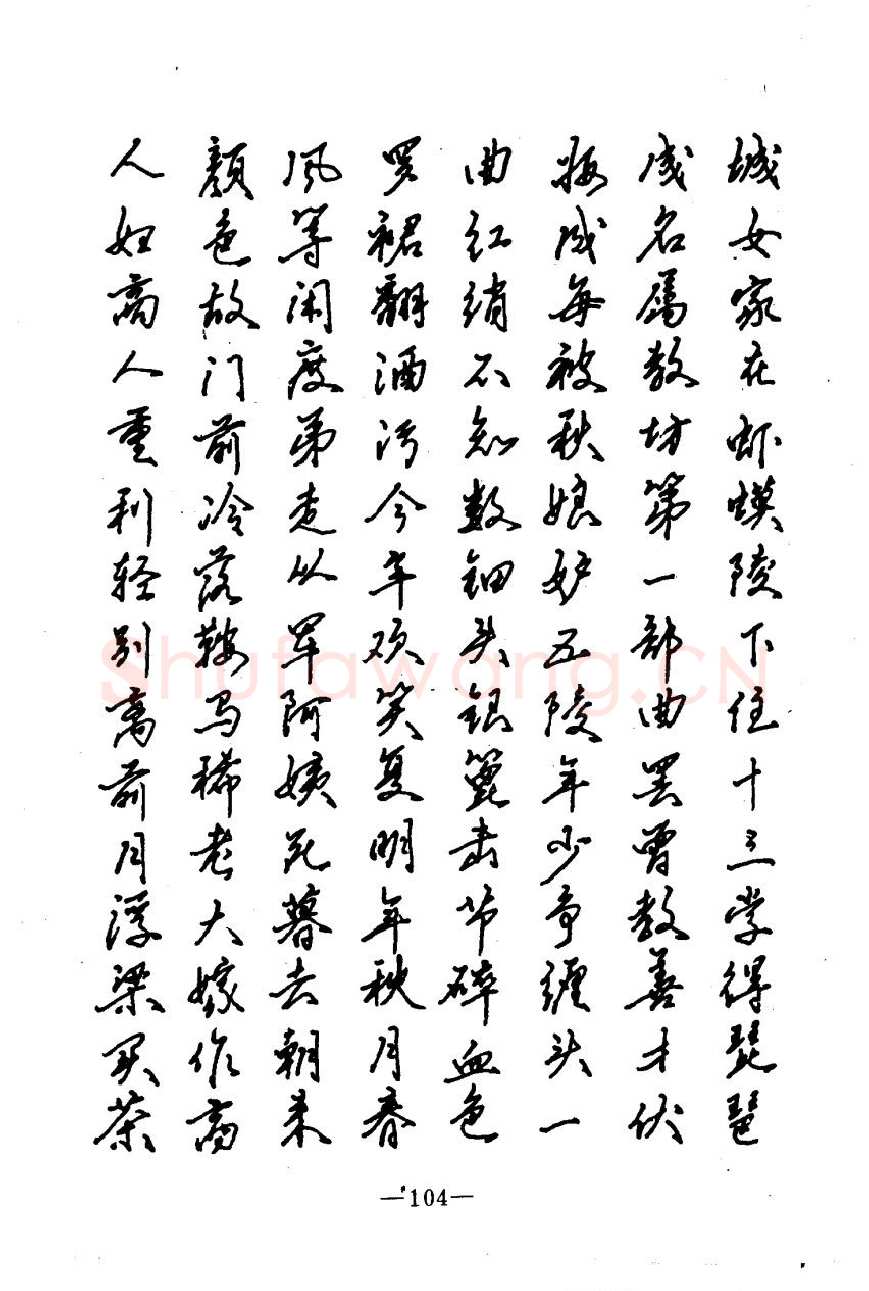 城女家在虾蟆陵下住十三学得琵琶
成名属教坊第一部曲罢曾教善才伏
妆成每被秋娘妒五陵年少争缠头一
曲红绡不知数钿头银篦击节碎血色
罗裙翻酒污今年欢笑复明年秋月春
风等闲度弟走从军阿姨死暮去朝来
颜色故门前冷落鞍马稀老大嫁作商
人妇商人重利轻别离前月浮梁买茶
—104—
Shufawang.CN